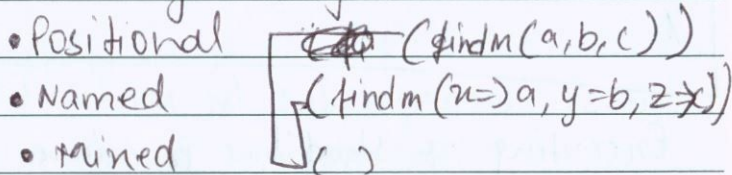 • Positional (findm(a,b,c))
• Named (findm(x=)a, y=b, z=x))
• Mixed ( )